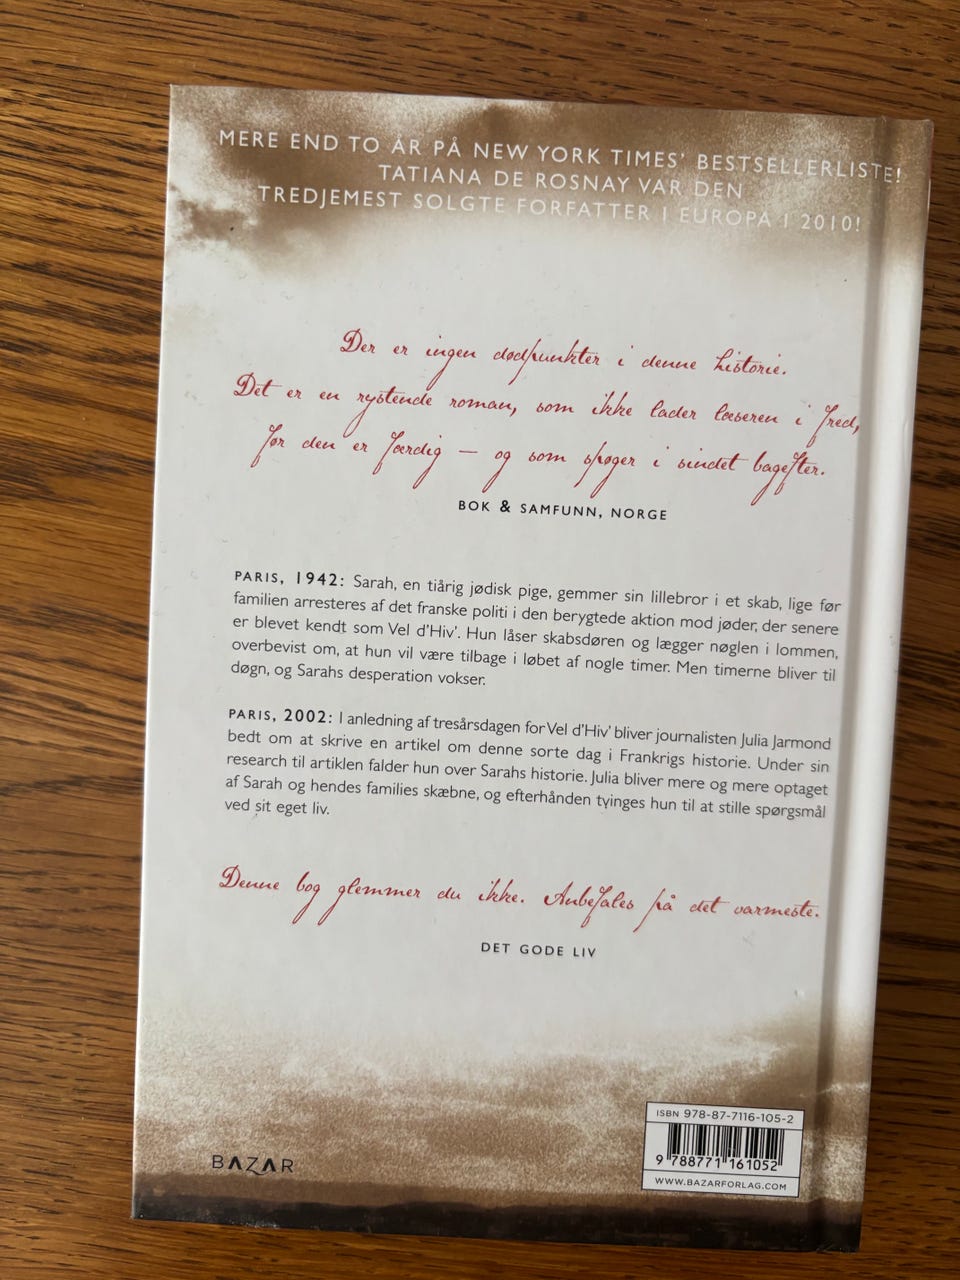 MERE END TO ÅR PÅ NEW YORK TIMES' BESTSELLERLISTE!
TATIANA DE ROSNAY VAR DEN
TREDJEMEST SOLGTE FORFATTER I EUROPA I 2010!
Der er ingen dødpunkter i denne historie.
Det er en rystende roman, som ikke lader læseren i fred,
før den er færdig – og som spøger i sindet bagefter.
BOK & SAMFUNN, NORGE
PARIS, 1942: Sarah, en tiårig jødisk pige, gemmer sin lillebror i et skab, lige før
familien arresteres af det franske politi i den berygtede aktion mod jøder, der senere
er blevet kendt som Vel d'Hiv'. Hun låser skabsdøren og lægger nøglen i lommen,
overbevist om, at hun vil være tilbage i løbet af nogle timer. Men timerne bliver til
døgn, og Sarahs desperation vokser.
PARIS, 2002: I anledning af tresårsdagen for Vel d'Hiv' bliver journalisten Julia Jarmond
bedt om at skrive en artikel om denne sorte dag i Frankrigs historie. Under sin
research til artiklen falder hun over Sarahs historie. Julia bliver mere og mere optaget
af Sarah og hendes families skæbne, og efterhånden tvinges hun til at stille spørgsmål
ved sit eget liv.
Denne bog glemmer du ikke. Anbefales på det varmeste.
DET GODE LIV
ISBN 978-87-7116-105-2
9 788771 161052
WWW.BAZARFORLAG.COM
BAZAR